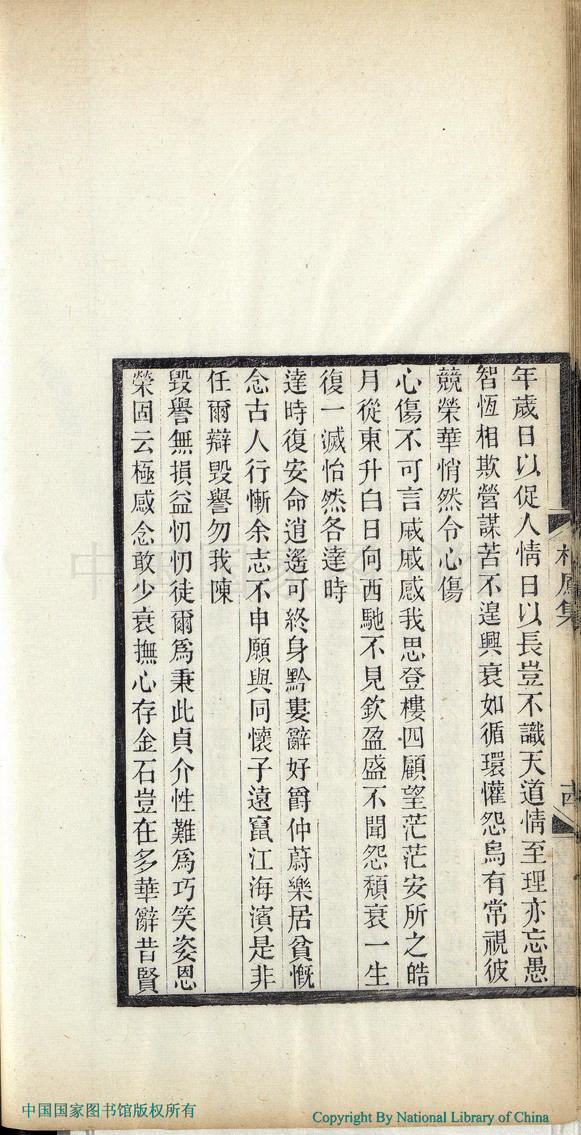 年歲日以促人情日以長豈不識天道情至理亦忘愚
智恆相欺營謀苦不遑興衰如循環懽怨烏有常視彼
競榮華悄然令心傷
心傷不可言戚戚感我思登樓四顧望茫茫安所之皓
月從東升白日向西馳不見欽盈盛不聞怨頹衰一生
復一滅怡然各達時
達時復安命逍遙可終身黔婁辭好爵仲蔚樂居貧慨
念古人行慚余志不申願與同懷子遠竄江海濱是非
任爾辯毀譽勿我陳
毀譽無損益忉忉徒爾爲秉此貞介性難爲巧笑姿恩
榮固云極感念敢少衰撫心存金石豈在多華辭昔賢
中国国家图书馆版权所有
Copyright By National Library of China